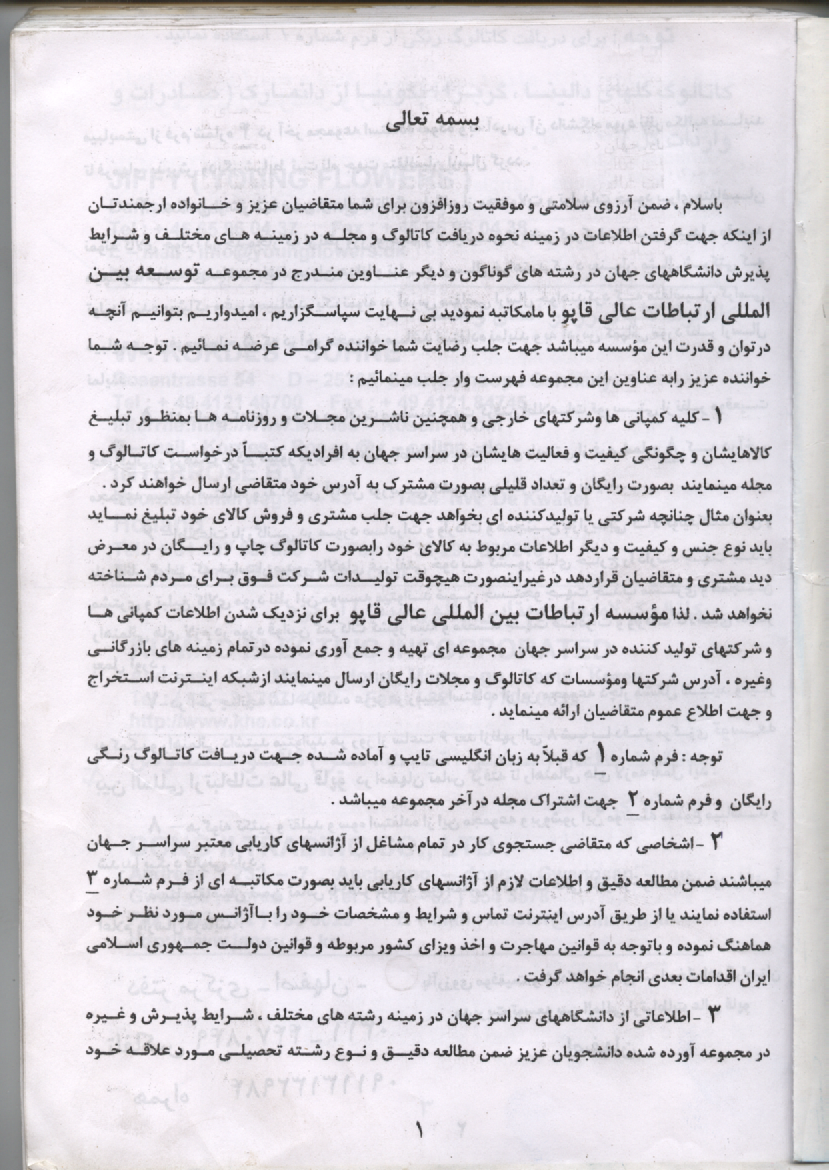 بسمه تعالی
باسلام ، ضمن آرزوی سلامتی و موفقیت روزافزون برای شما متقاضیان عزیز و خانواده ارجمندتان
از اینکه جهت گرفتن اطلاعات در زمینه نحوه دریافت کاتالوگ و مجله در زمینه های مختلف و شرایط
پذیرش دانشگاههای جهان در رشته های گوناگون و دیگر عناوین مندرج در مجموعه توسعه بین
المللی ارتباطات عالی قاپو با مامکاتبه نمودید بی نهایت سپاسگزاریم ، امیدواریم بتوانیم آنچه
درتوان و قدرت این مؤسسه میباشد جهت جلب رضایت شما خواننده گرامی عرضه نمائیم . توجه شما
خواننده عزیز رابه عناوین این مجموعه فهرست وار جلب مینمائیم :
۱ - کلیه کمپانی ها وشرکتهای خارجی و همچنین ناشرین مجلات و روزنامه ها بمنظور تبلیغ
کالاهایشان و چگونگی کیفیت و فعالیت هایشان در سراسر جهان به افرادیکه کتباً درخواست کاتالوگ و
مجله مینمایند بصورت رایگان و تعداد قلیلی بصورت مشترک به آدرس خود متقاضی ارسال خواهند کرد .
بعنوان مثال چنانچه شرکتی یا تولیدکننده ای بخواهد جهت جلب مشتری و فروش کالای خود تبلیغ نماید
باید نوع جنس و کیفیت و دیگر اطلاعات مربوط به کالای خود رابصورت کاتالوگ چاپ و رایگان در معرض
دید مشتری و متقاضیان قراردهد درغیراینصورت هیچوقت تولیدات شرکت فوق برای مردم شناخته
نخواهد شد . لذا مؤسسه ارتباطات بین المللی عالی قاپو برای نزدیک شدن اطلاعات کمپانی ها
و شرکتهای تولید کننده در سراسر جهان مجموعه ای تهیه و جمع آوری نموده درتمام زمینه های بازرگانی
وغیره ، آدرس شرکتها ومؤسسات که کاتالوگ و مجلات رایگان ارسال مینمایند ازشبکه اینترنت استخراج
و جهت اطلاع عموم متقاضیان ارائه مینماید .
توجه : فرم شماره ۱ که قبلاً به زبان انگلیسی تایپ و آماده شده جهت دریافت کاتالوگ رنگی
رایگان و فرم شماره ۲ جهت اشتراک مجله درآخر مجموعه میباشد .
۲ - اشخاصی که متقاضی جستجوی کار در تمام مشاغل از آژانسهای کاریابی معتبر سراسر جهان
میباشند ضمن مطالعه دقیق و اطلاعات لازم از آژانسهای کاریابی باید بصورت مکاتبه ای از فرم شماره ۳
استفاده نمایند یا از طریق آدرس اینترنت تماس و شرایط و مشخصات خود را با آژانس مورد نظر خود
هماهنگ نموده و باتوجه به قوانین مهاجرت و اخذ ویزای کشور مربوطه و قوانین دولت جمهوری اسلامی
ایران اقدامات بعدی انجام خواهد گرفت .
۳ - اطلاعاتی از دانشگاههای سراسر جهان در زمینه رشته های مختلف ، شرایط پذیرش و غیره
در مجموعه آورده شده دانشجویان عزیز ضمن مطالعه دقیق و نوع رشته تحصیلی مورد علاقه خود
۱